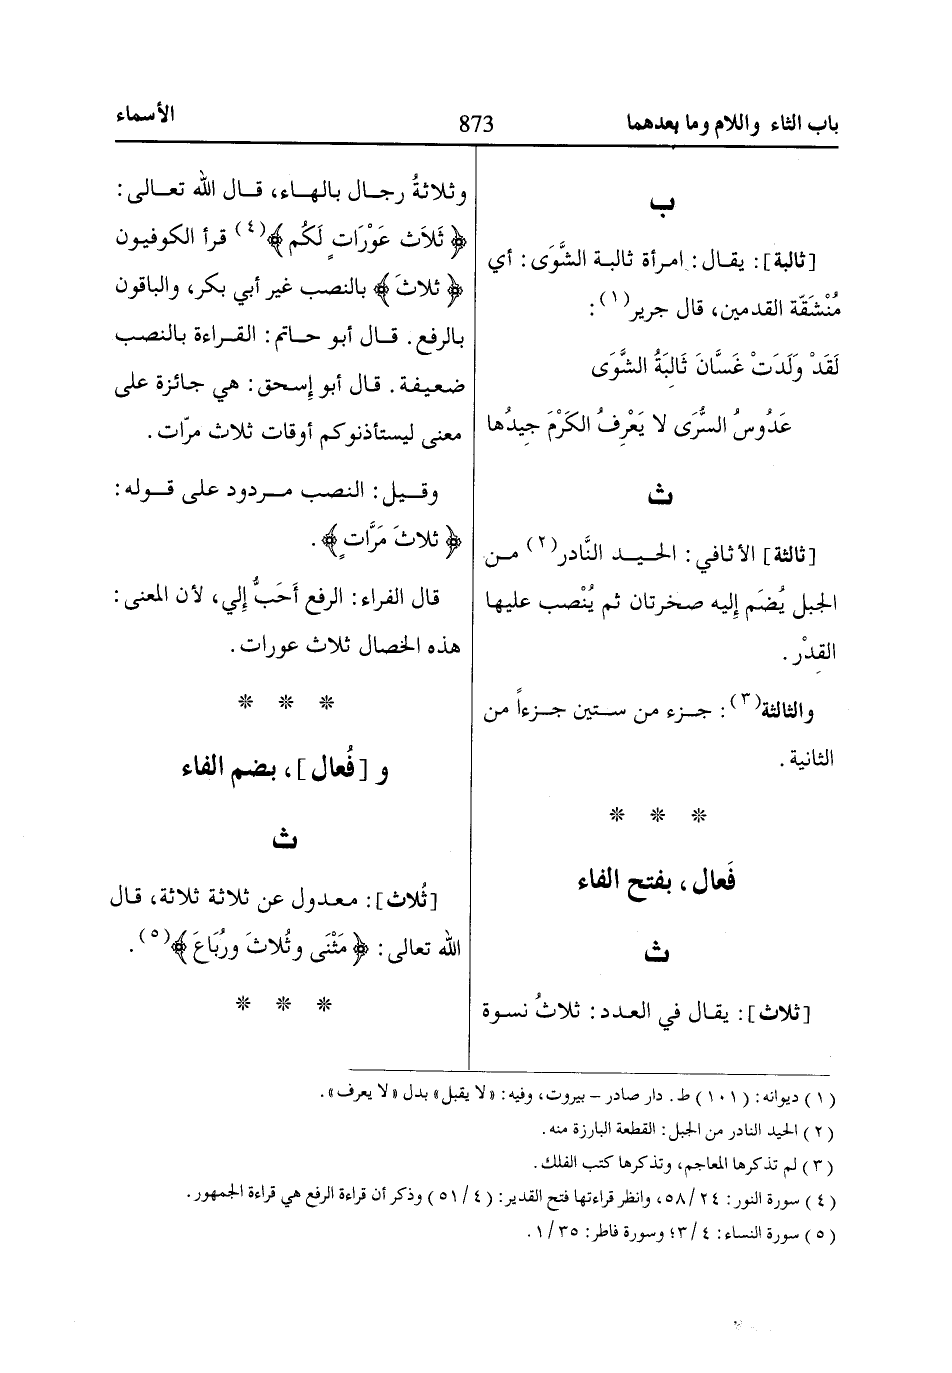 باب الثاء واللام وما بعدهما
873
الأسماء
ب
[ثالبة]: يقال: امرأة ثالبة الشَّوَى: أي
مُنْشَقّة القدمين، قال جرير(١):
لَقَدْ وَلَدَتْ غَسَّان ثَالِبَةُ الشَّوَى
عَدُوسُ السُّرَى لا يَعْرِفُ الكَرْمَ جِيدُها
ث
[ثالثة] الأثافي: الحيد النَّادر(٢) من
الجبل يُضَم إليه صخرتان ثم يُنْصب عليها
القِدْر.
والثالثة(٣): جزء من ستين جزءاً من
الثانية.
* * *
فَعال، بفتح الفاء
ث
[ثلاث]: يقال في العدد: ثلاثُ نسوة
وثلاثةُ رجال بالهاء، قال الله تعالى:
﴿ ثَلاَث عَوْرَاتٍ لَكُم ﴾(٤) قرأ الكوفيون
﴿ ثلاثَ ﴾ بالنصب غير أبي بكر، والباقون
بالرفع. قال أبو حاتم: القراءة بالنصب
ضعيفة. قال أبو إسحق: هي جائزة على
معنى ليستأذنوكم أوقات ثلاث مرّات.
وقيل: النصب مردود على قوله:
﴿ ثلاثَ مَرَّاتٍ ﴾.
قال الفراء: الرفع أَحَبُّ إلي، لأن المعنى:
هذه الخصال ثلاث عورات.
* * *
و [فُعال]، بضم الفاء
ث
[ثُلاث]: معدول عن ثلاثة ثلاثة، قال
الله تعالى: ﴿ مَثْنَى وثُلاثَ ورُبَاعَ ﴾(٥).
* * *
(١) ديوانه: (١٠١) ط. دار صادر – بيروت، وفيه: «لا يقبل» بدل «لا يعرف».
(٢) الحيد النادر من الجبل: القطعة البارزة منه.
(٣) لم تذكرها المعاجم، وتذكرها كتب الفلك.
(٤) سورة النور: ٢٤/ ٥٨، وانظر قراءتها فتح القدير: (٤/ ٥١) وذكر أن قراءة الرفع هي قراءة الجمهور.
(٥) سورة النساء: ٤/ ٣؛ وسورة فاطر: ٣٥/ ١.